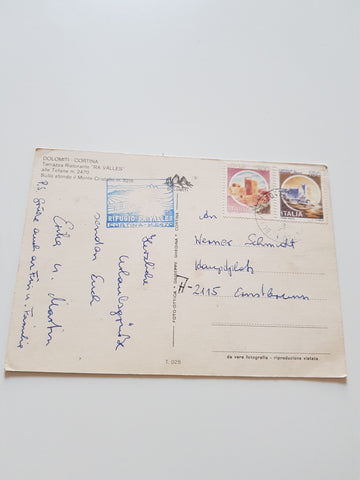 DOLOMITI - CORTINA
Terrazza Ristorante "RA VALLES"
alle Tofane m. 2470
Sullo sfondo il Monte Cristallo m. 3216
RIFUGIO RA VALLES
CORTINA - M. 2470
Herzliche
Urlaubsgrüße
senden Euch
Erika u. Martin
P.S. Grüße auch an Fam. u. Familie
ITALIA
An
Werner Schmidt
Hauptplatz
A-2115 Ernstbrunn
T. 028
da vera fotografia - riproduzione vietata